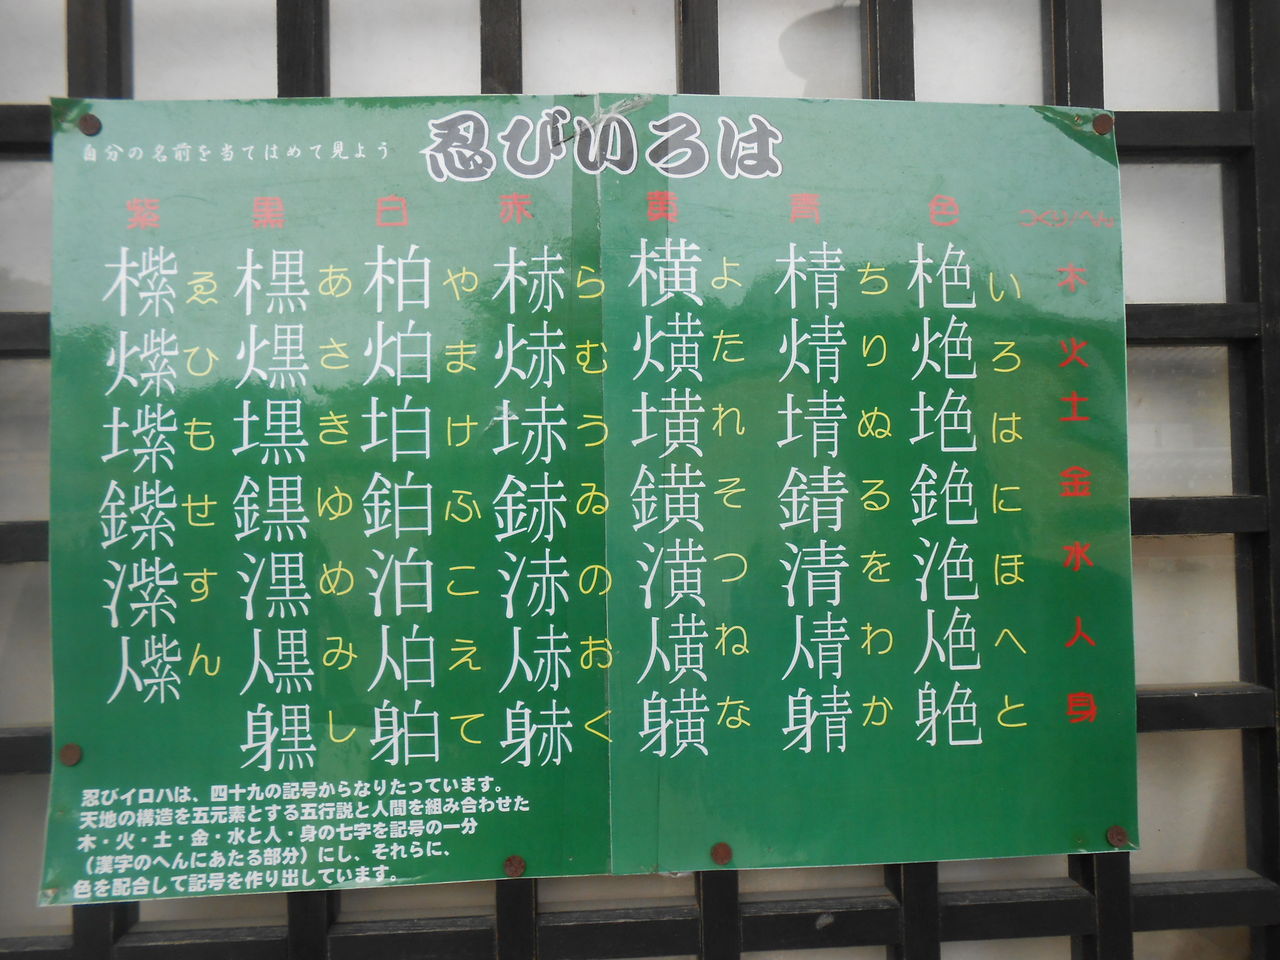 忍びいろは
自分の名前を当てはめて見よう
紫 黒 白 赤 黄 青 色 つくり/へん
ゑ あ 柏 や ら 横 よ 棈 ち 栬 い 木
ひ さ ま む 熿 た り ろ 火
も き け う 墴 れ 埥 ぬ は 土
せ ゆ 鉑 ふ ゐ 鐄 そ 錆 る 銫 に 金
す 潶 め 泊 こ 浾 の 潢 つ 清 を ほ 水
ん み 伯 え お 僙 ね 倩 わ へ 人
し て く な か と 身
忍びイロハは、四十九の記号からなりたっています。
天地の構造を五元素とする五行説と人間を組み合わせた
木・火・土・金・水と人・身の七字を記号の一分
（漢字のへんにあたる部分）にし、それらに、
色を配合して記号を作り出しています。